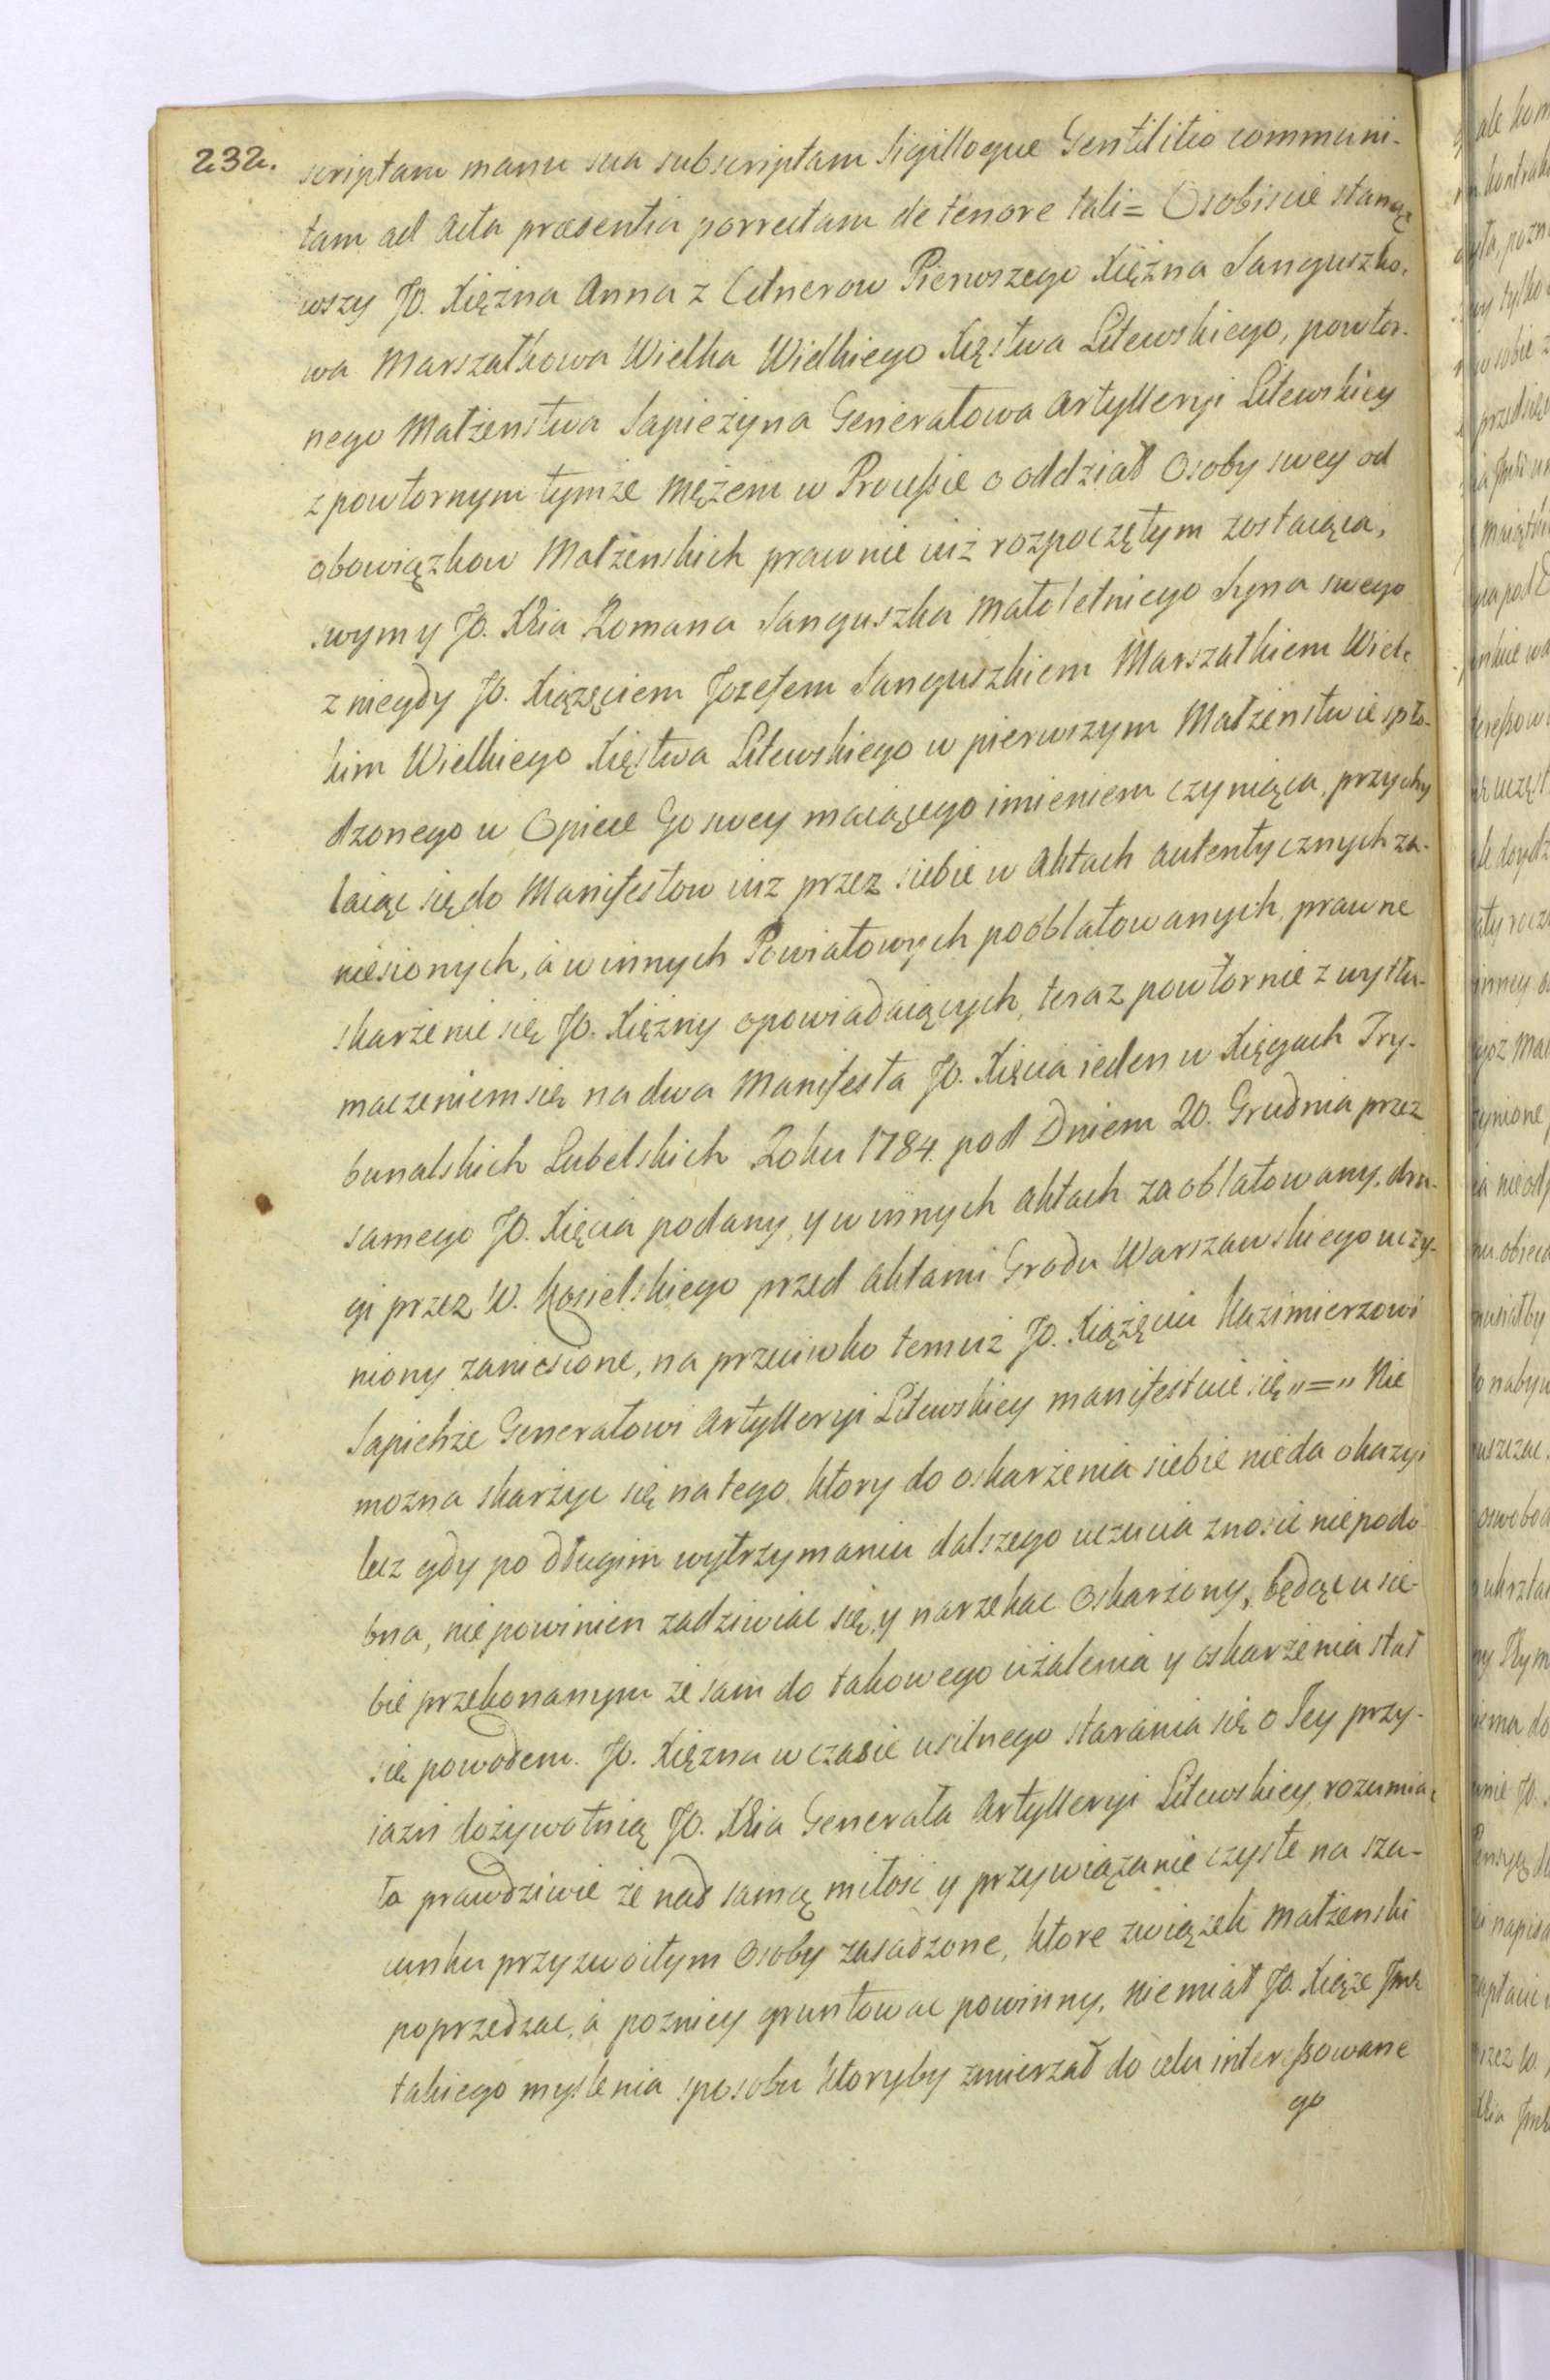 232.
scriptam manu sua subscriptam Sigilloque Gentilitio communi-
tam ad Acta præsentia porrectam de tenore tali = Osobiscie staną
wszy JO. Xiężna Anna z Cetnerow Pierwszego Xiężna Sanguszko-
wa Marszałkowa Wielka Wielkiego Xięstwa Litewskiego, powtor-
nego Małżenstwa Sapieżyna Generałowa Artylleryi Litewskiey
z powtornym tymże Mężem w Processie o oddział Osoby swey od
obowiązkow Małżenskich prawnie iuż rozpoczętym zostaiąca,
swym y JO. Xcia Romana Sanguszka Małoletniego Syna swego
z niegdy JO. Xiążęciem Jozefem Sanguszkiem Marszałkiem Wiel-
kim Wielkiego Xięstwa Litewskiego w pierwszym Małżenstwie spło-
dzonego w Opiece Go swey maiącego imieniem czyniąca, przychy
laiąc się do Manifestow iuz przez siebie w Aktach Autentycznych za-
niesionych, a w innych Powiatowych pooblatowanych, prawne
skarżenie się JO. Xiężny opowiadaiących, teraz powtornie z wytłu-
maczeniem się na dwa Manifesta JO. Xięcia ieden w Xięgach Try-
bunalskich Lubelskich Roku 1784. pod Dniem 20. Grudnia przez
samego JO. Xięcia podany, y w innych Aktach zaoblatowany, dru-
gi przez W. Kosielskiego przed Aktami Grodu Warszawskiego uczy-
niony zaniesione, na przeciwko temuż JO. Xiążęciu Kazimierzowi
Sapieże Generałowi Artylleryi Litewskiey manifestuie się „=„ Nie
mozna skarżyc się na tego, ktory do oskarżenia siebie nieda okazyi
lecz gdy po długim wytrzymaniu dalszego uczucia znosic niepodo-
bna, nie powinien zadziwiac się, y narzekac Oskarżony, będąc u sie-
bie przekonanym że sam do takowego użalenia y oskarżenia stał
się powodem. JO. Xiężna w czasie usilnego starania się o Jey przy-
iazn dożywotnią JO. Xcia Generała Artylleryi Litewskiey rozumia-
ła prawdziwie że nad samą miłosc y przywiązanie czyste na sza-
cunku przyzwoitym Osoby zasadzone, ktore związek Małżenski
poprzedzac, a pozniey gruntowac powinny, nie miał JO. Xiąże Jmć
takiego myslenia sposobu ktoryby zmierzał do celu interessowane
go